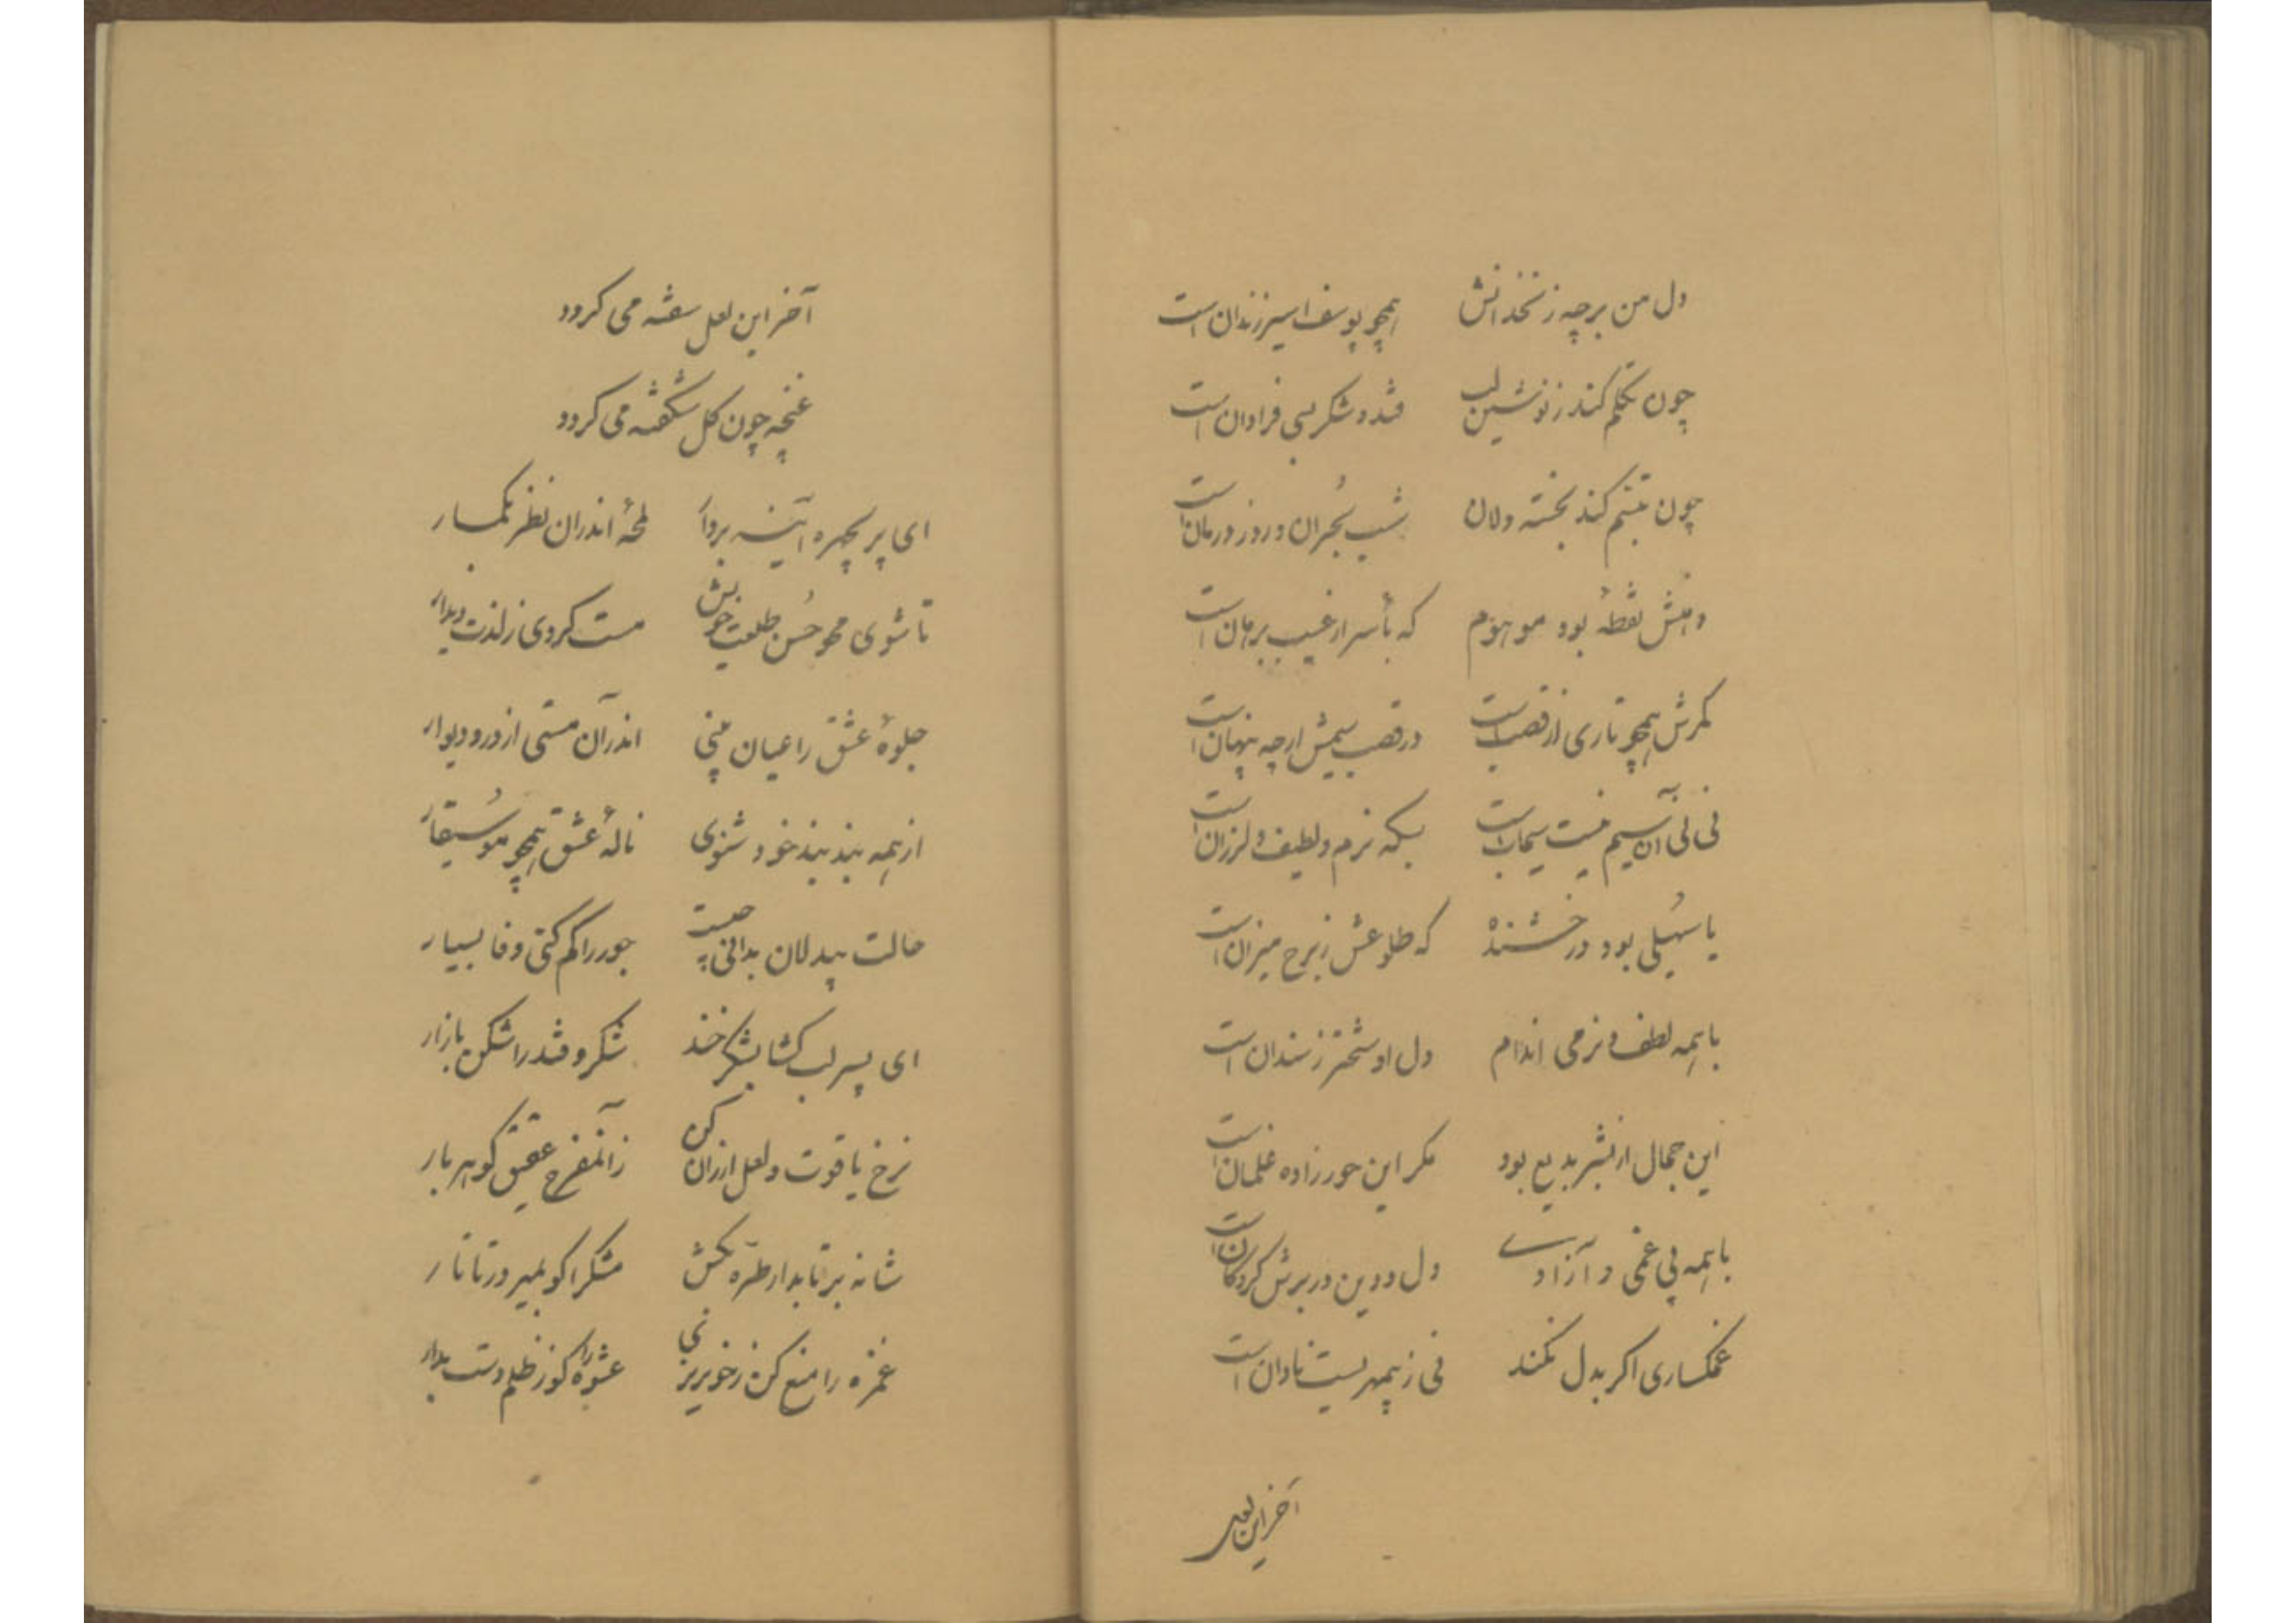 دل من بر چه زنخدانش همچو یوسف اسیر زندان است
چون تکلم کند ز نوشین لب قند و شکر بسی فراوان است
چون تبسم کند بخسته دلان شب هجران و روز درمان است
دهنش نقطهٔ بود موهوم که بأسرار غیب برهان است
کمرش همچو تاری از قصب است در قصب سیمش ارچه پنهان است
نی نی آن سیم نیست سیماب است بسکه نرم و لطیف و لرزان است
یا سهیلی بود درخشنده که طلوعش ز برج میزان است
با همه لطف و نرمی اندام دل او سختتر ز سندان است
این جمال از بشر بدیع بود مکر این حورزاده غلمان است
با همه بی غمی و آزادی دل و دین در برش کروکان است
غمکساری اکر بدل نکند نی ز بیمهریست نادان است
آخر این لعل
آخر این لعل سفته می کردد
غنچه چون کل شکفته می کردد
ای پریچهره آینه بردآر لمحهٔ اندران نظر بکمار
تا شوی محو حُسن طلعت خویش مست کردی ز لذت دیدار
جلوهٔ عشق را عیان بینی اندرآن مستی از در و دیوار
از همه بند بند خود شنوی نالهٔ عشق همچو موسُیقار
حالت بیدلان بدانی چیست جور را کم کنی وفا بسیار
ای پسر لب کشا بشکرخند شکر و قند را شکن بازار
نرخ یاقوت و لعل ارزان کن زآنمفرح عقیق کوهربار
شانه بر تابدار طرّه بکش مشکرا کو بمیر در تاتار
غمزه را منع کن ز خونریزی عشوه را کو ز ظلم دست بدار